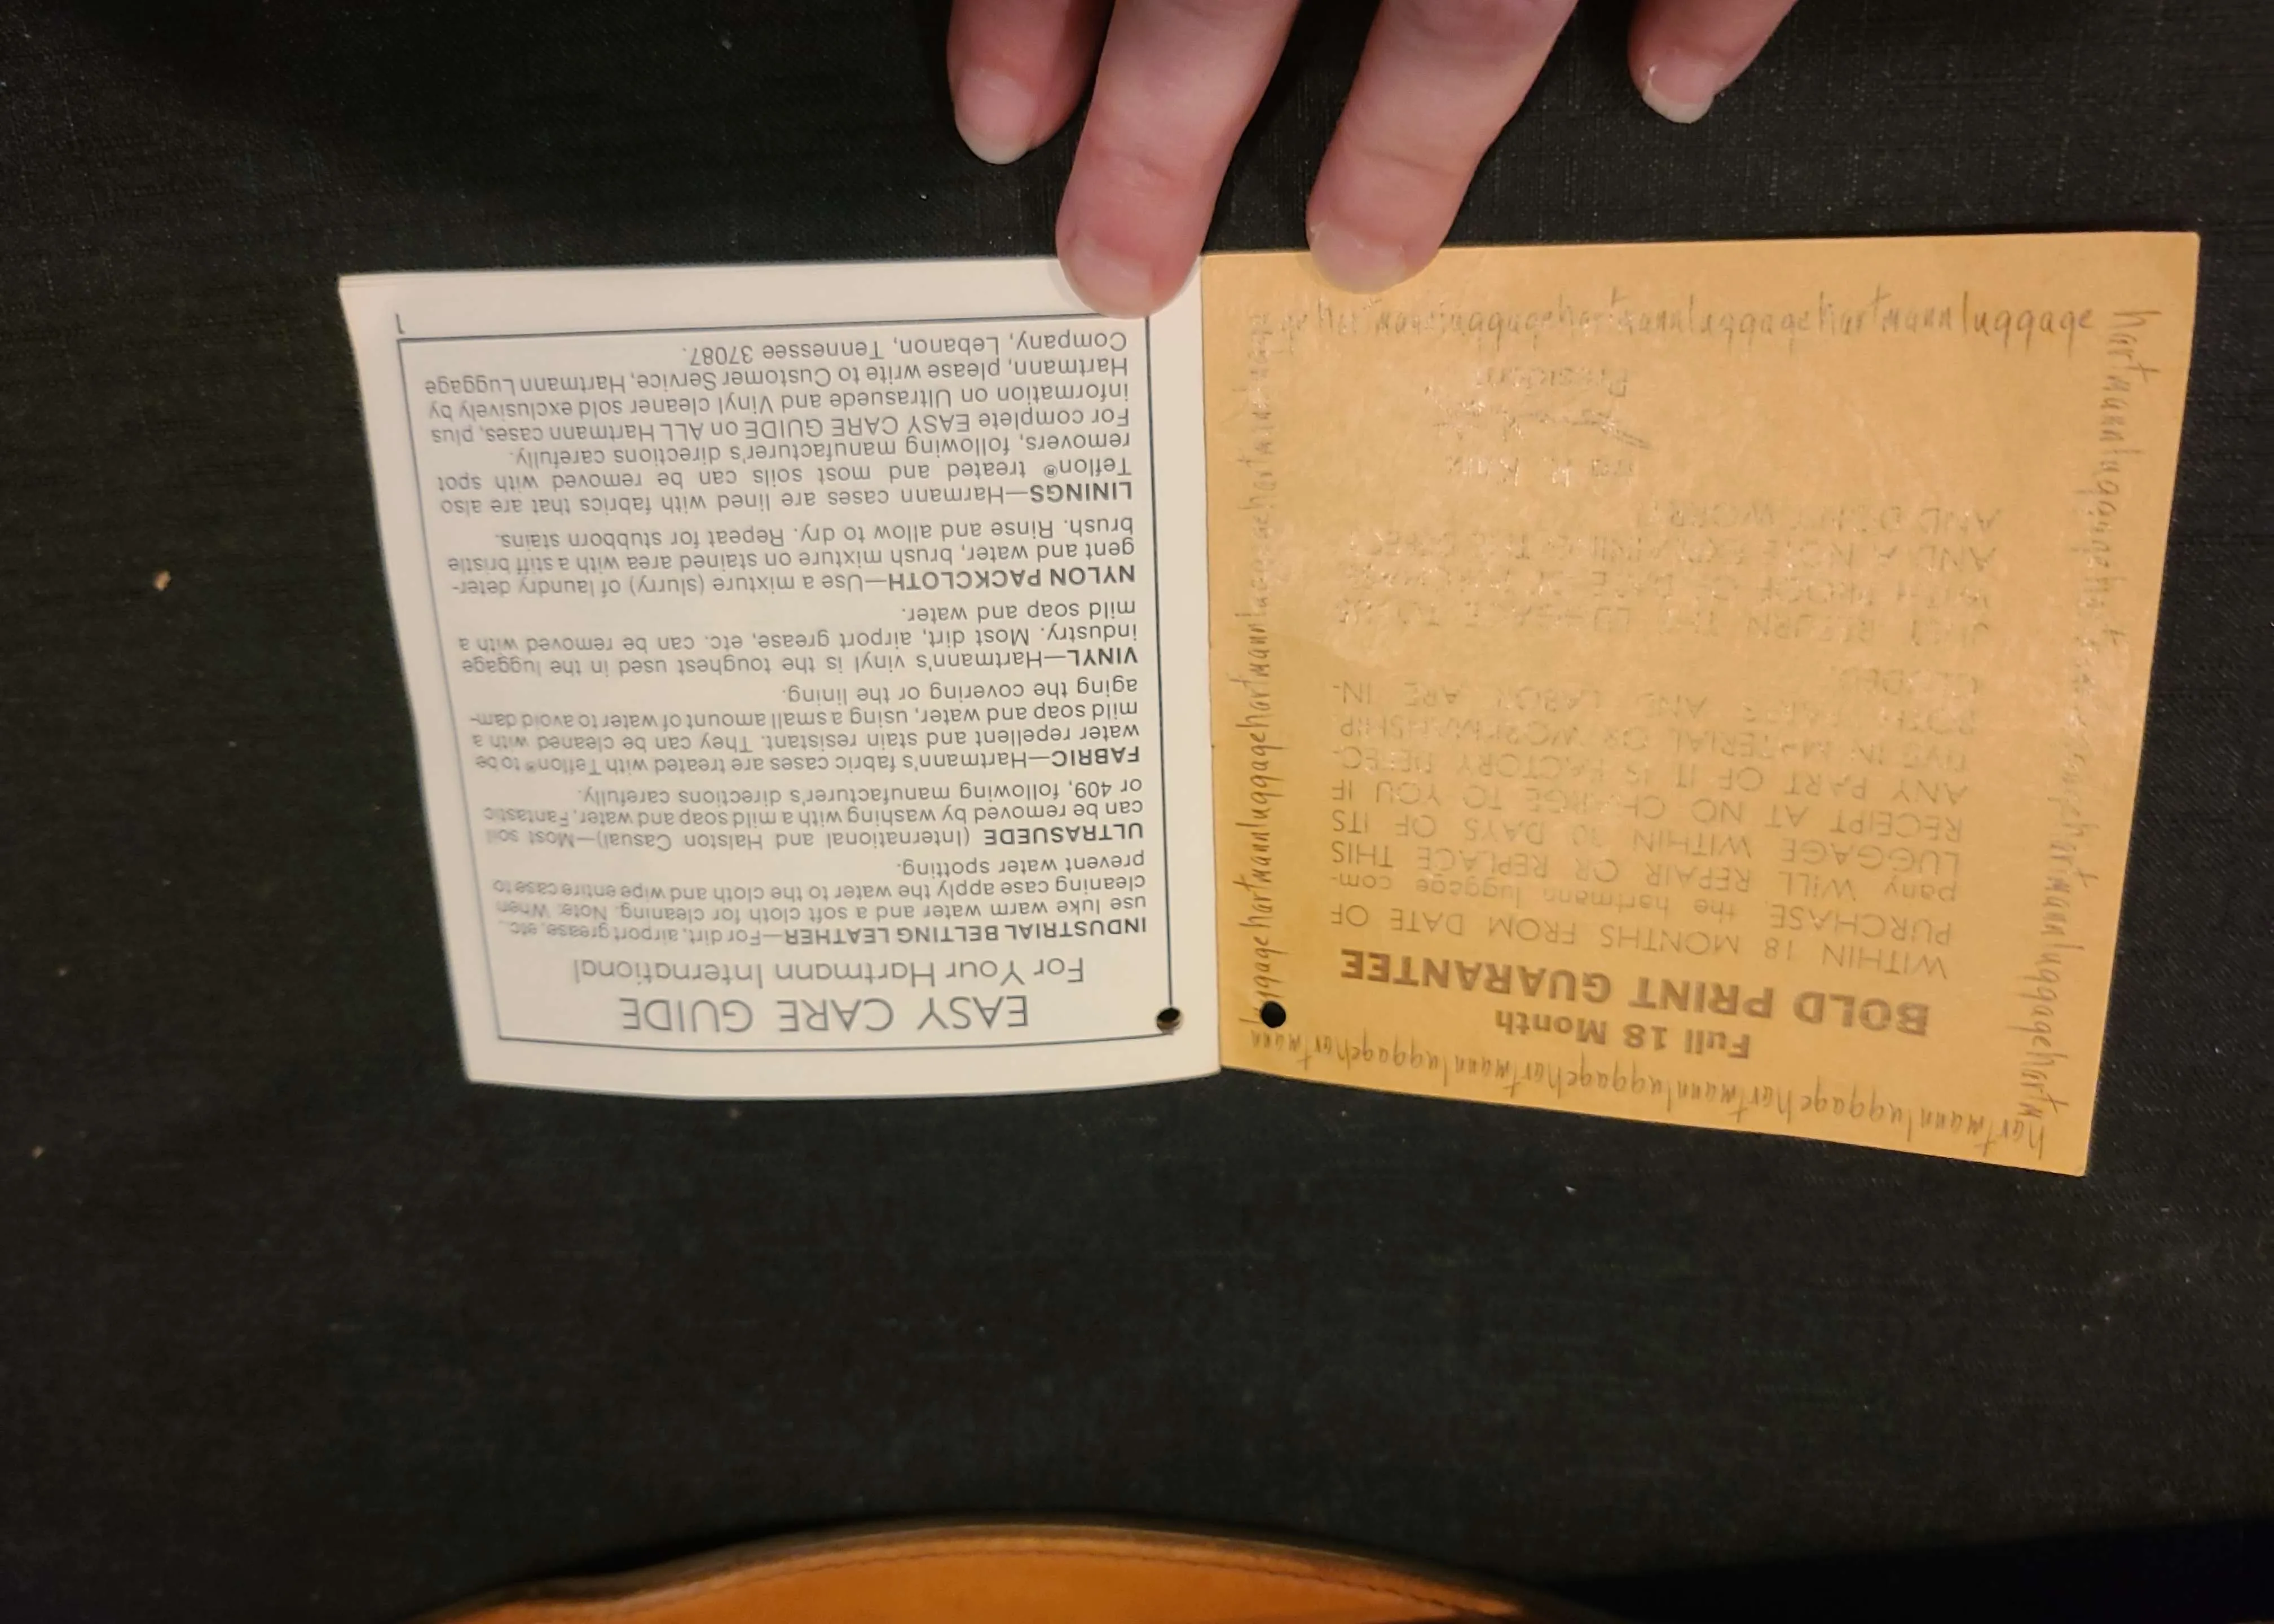 hartmannluggagehartmannluggagehartmannluggagehartmann
Full 18 Month
BOLD PRINT GUARANTEE
WITHIN 18 MONTHS FROM DATE OF
PURCHASE, the hartmann luggage com-
pany WILL REPAIR OR REPLACE THIS
LUGGAGE WITHIN 30 DAYS OF ITS
RECEIPT AT NO CHARGE TO YOU IF
ANY PART OF IT IS FACTORY DEFEC-
TIVE IN MATERIAL OR WORKMANSHIP.
BOTH PARTS AND LABOR ARE IN-
CLUDED.
JUST RETURN THE LUGGAGE TO US
WITH PROOF OF DATE OF PURCHASE
AND A NOTE EXPLAINING THE DEFECT
AND DON'T WORRY.
Ira K. Katz
President
hartmannluggagehartmannluggagehartmannluggage
EASY CARE GUIDE
For Your Hartmann International
INDUSTRIAL BELTING LEATHER—For dirt, airport grease, etc.,
use luke warm water and a soft cloth for cleaning. Note: When
cleaning case apply the water to the cloth and wipe entire case to
prevent water spotting.
ULTRASUEDE (International and Halston Casual)—Most soil
can be removed by washing with a mild soap and water, Fantastic
or 409, following manufacturer's directions carefully.
FABRIC—Hartmann's fabric cases are treated with Teflon® to be
water repellent and stain resistant. They can be cleaned with a
mild soap and water, using a small amount of water to avoid dam-
aging the covering or the lining.
VINYL—Hartmann's vinyl is the toughest used in the luggage
industry. Most dirt, airport grease, etc. can be removed with a
mild soap and water.
NYLON PACKCLOTH—Use a mixture (slurry) of laundry deter-
gent and water, brush mixture on stained area with a stiff bristle
brush. Rinse and allow to dry. Repeat for stubborn stains.
LININGS—Harmann cases are lined with fabrics that are also
Teflon® treated and most soils can be removed with spot
removers, following manufacturer's directions carefully.
For complete EASY CARE GUIDE on ALL Hartmann cases, plus
information on Ultrasuede and Vinyl cleaner sold exclusively by
Hartmann, please write to Customer Service, Hartmann Luggage
Company, Lebanon, Tennessee 37087.
1